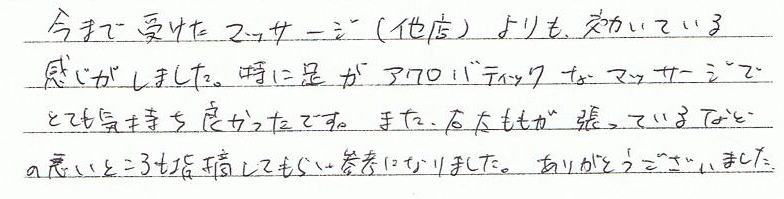 今まで受けたマッサージ(他店)よりも、効いている
感じがしました。特に足がアクロバティックなマッサージで
とても気持ち良かったです。また、右太ももが張っているなど
の悪いところも指摘してもらい参考になりました。ありがとうございました